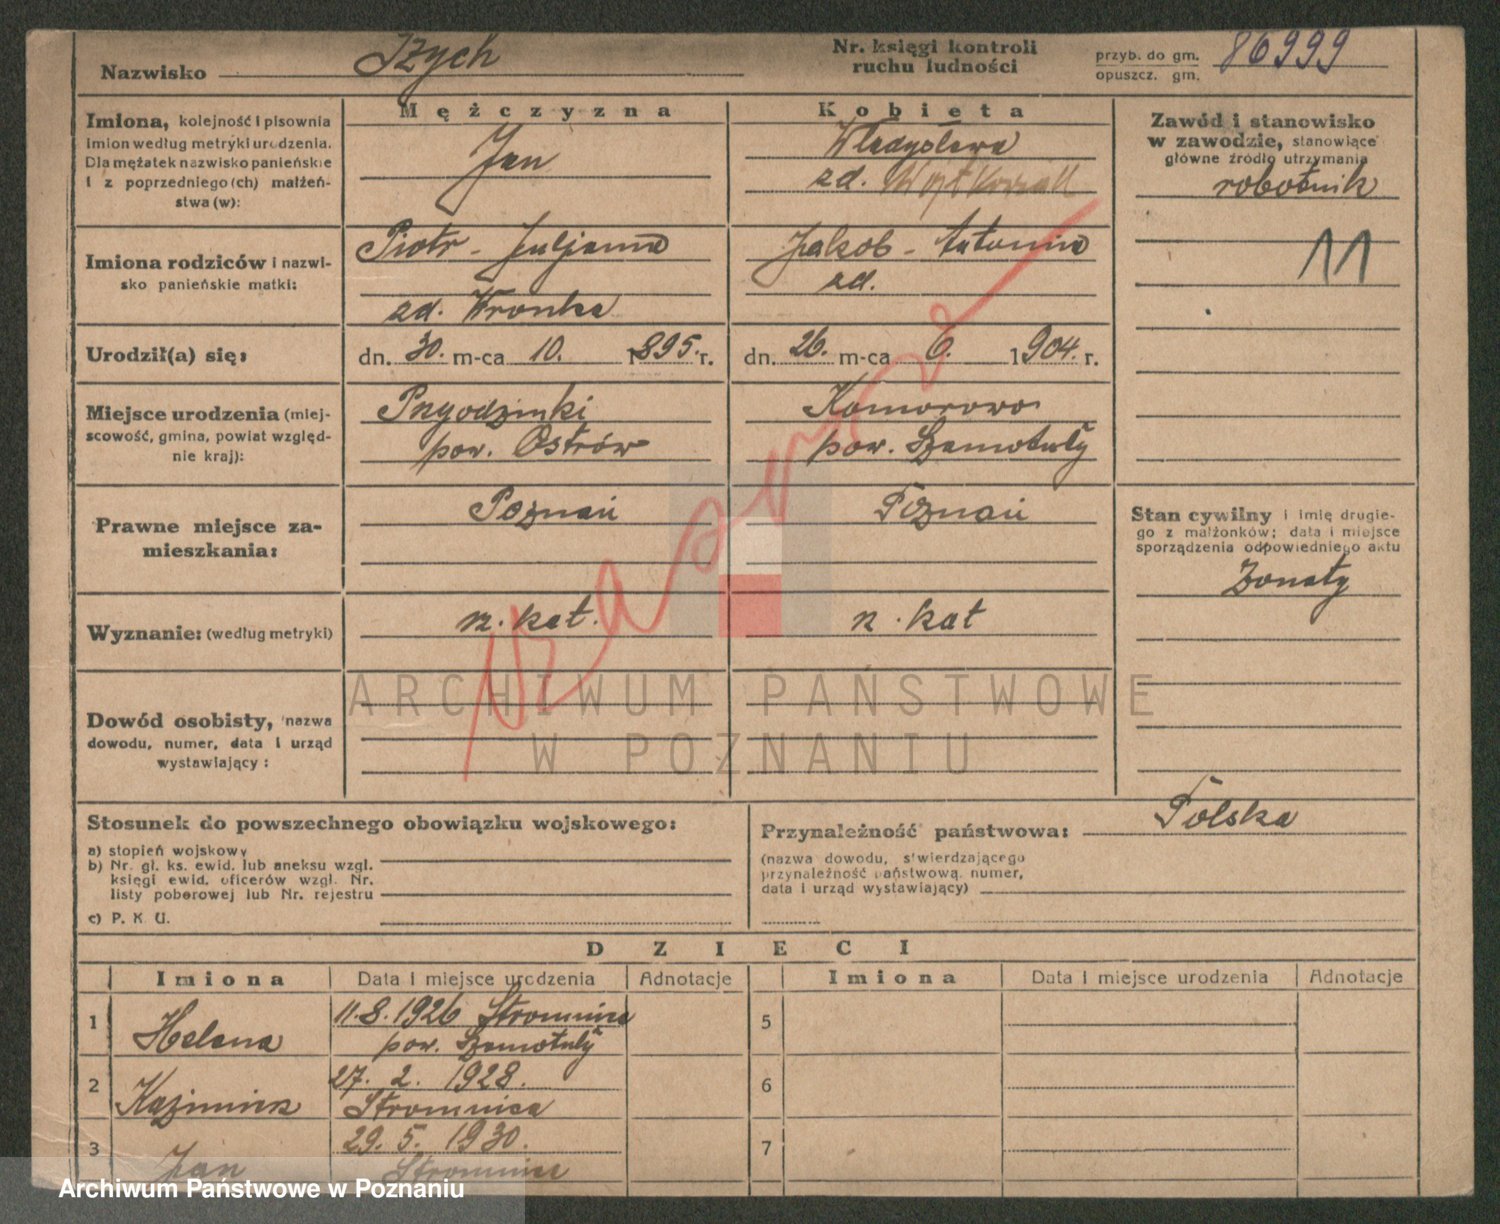 Nazwisko Izych
Nr. księgi kontroli
ruchu ludności
przyb. do gm.
opuszcz. gm.
86999
Mężczyzna
Kobieta
Imiona, kolejność i pisownia
imion według metryki urodzenia.
Dla mężatek nazwisko panieńskie
i z poprzedniego (ch) małżeń-
stwa (w):
Jan
Władysława
zd.
Zawód i stanowisko
w zawodzie, stanowiące
główne źródło utrzymania
robotnik
11
Imiona rodziców i nazwi-
sko panieńskie matki:
Piotr - Juljanna
zd. Wronka
Jakób - Antonina
zd.
Urodził(a) się:
dn. 30. m-ca 10. 1895. r.
dn. 26. m-ca 6. 1904. r.
Miejsce urodzenia (miej-
scowość, gmina, powiat względ-
nie kraj):
Przygodzinki
pow. Ostrów
Komorowo
pow. Szamotuły
Prawne miejsce za-
mieszkania:
Poznań
Poznań
Stan cywilny i imię drugie-
go z małżonków; data i miejsce
sporządzenia odpowiedniego aktu
żonaty
Wyznanie: (według metryki)
rz. kat.
rz. kat
Dowód osobisty, nazwa
dowodu, numer, data i urząd
wystawiający:
ARCHIWUM PAŃSTWOWE
W POZNANIU
Stosunek do powszechnego obowiązku wojskowego:
a) stopień wojskowy
b) Nr. gł. ks. ewid. lub aneksu wzgl.
księgi ewid. oficerów wzgl. Nr.
listy poborowej lub Nr. rejestru
c) P. K. U.
Przynależność państwowa: Polska
(nazwa dowodu, stwierdzającego
przynależność państwową, numer,
data i urząd wystawiający)
DZIECI
Imiona Data i miejsce urodzenia Adnotacje Imiona Data i miejsce urodzenia Adnotacje
1 Helena 11.8.1926 Stromnica
pow. Szamotuły
5
2 Kazimierz 27. 2. 1928.
Stromnica
6
3 Jan 29. 5. 1930.
Stromnica
7
Archiwum Państwowe w Poznaniu